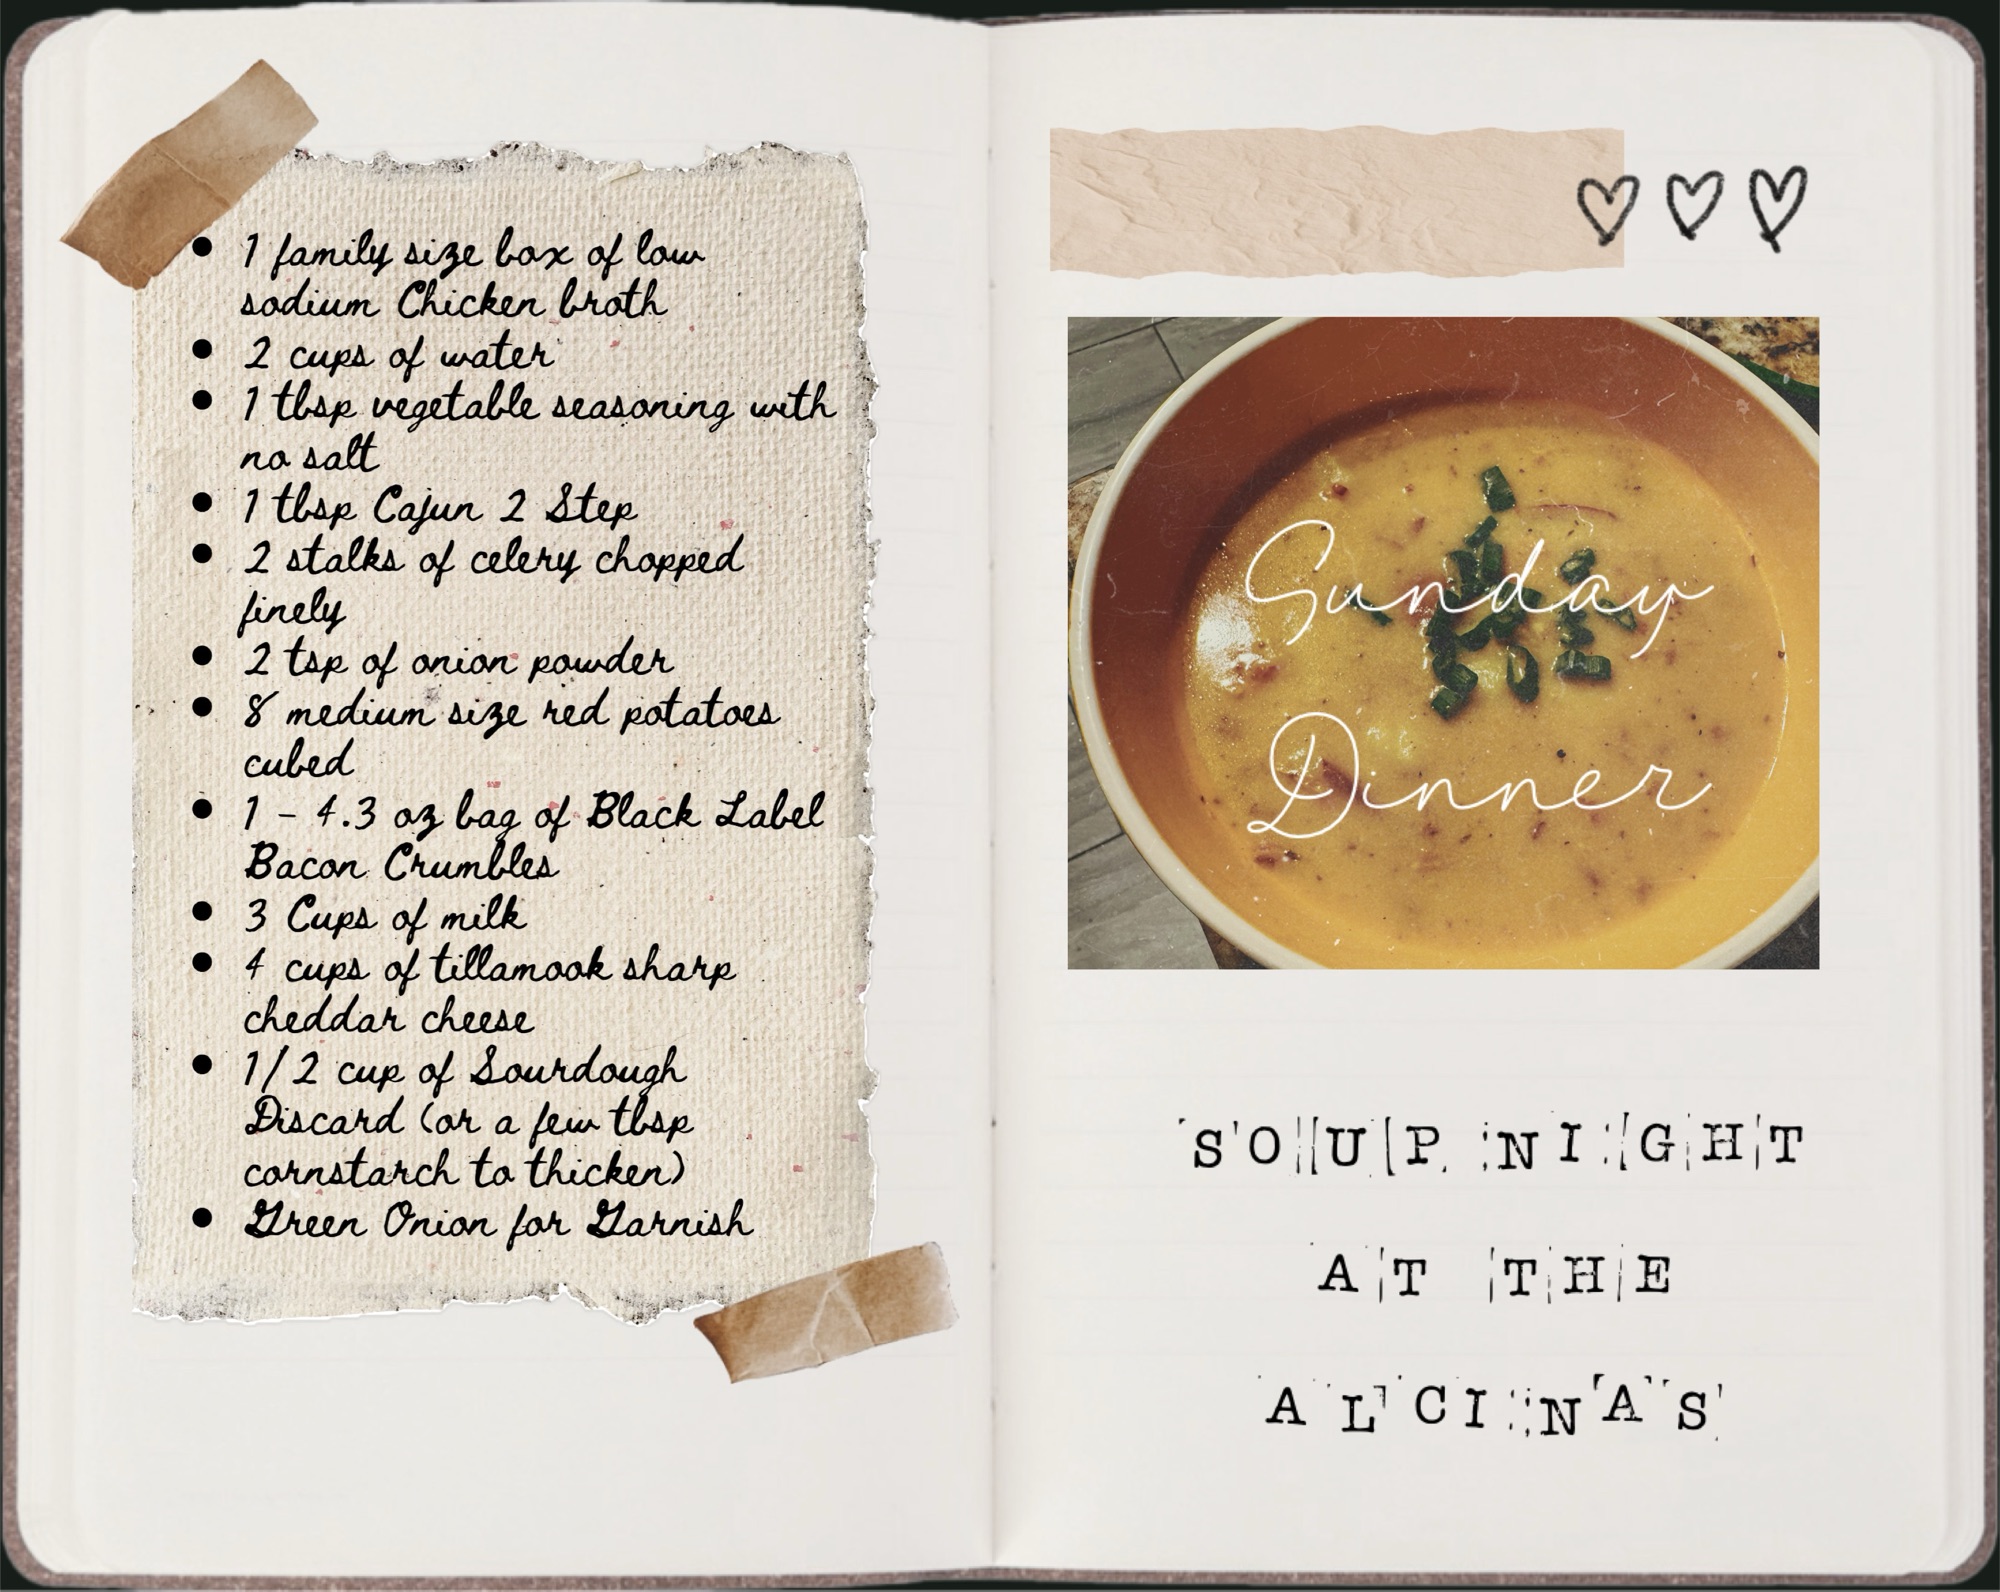 • 1 family size box of low
sodium Chicken broth
• 2 cups of water
• 1 tbsp vegetable seasoning with
no salt
• 1 tbsp Cajun 2 Step
• 2 stalks of celery chopped
finely
• 2 tsp of onion powder
• 8 medium size red potatoes
cubed
• 1 - 4.3 oz bag of Black Label
Bacon Crumbles
• 3 Cups of milk
• 4 cups of tillamook sharp
cheddar cheese
• 1/2 cup of Sourdough
Discard (or a few tbsp
cornstarch to thicken)
• Green Onion for Garnish
Sunday
Dinner
SOUP NIGHT
AT THE
ALCINA'S